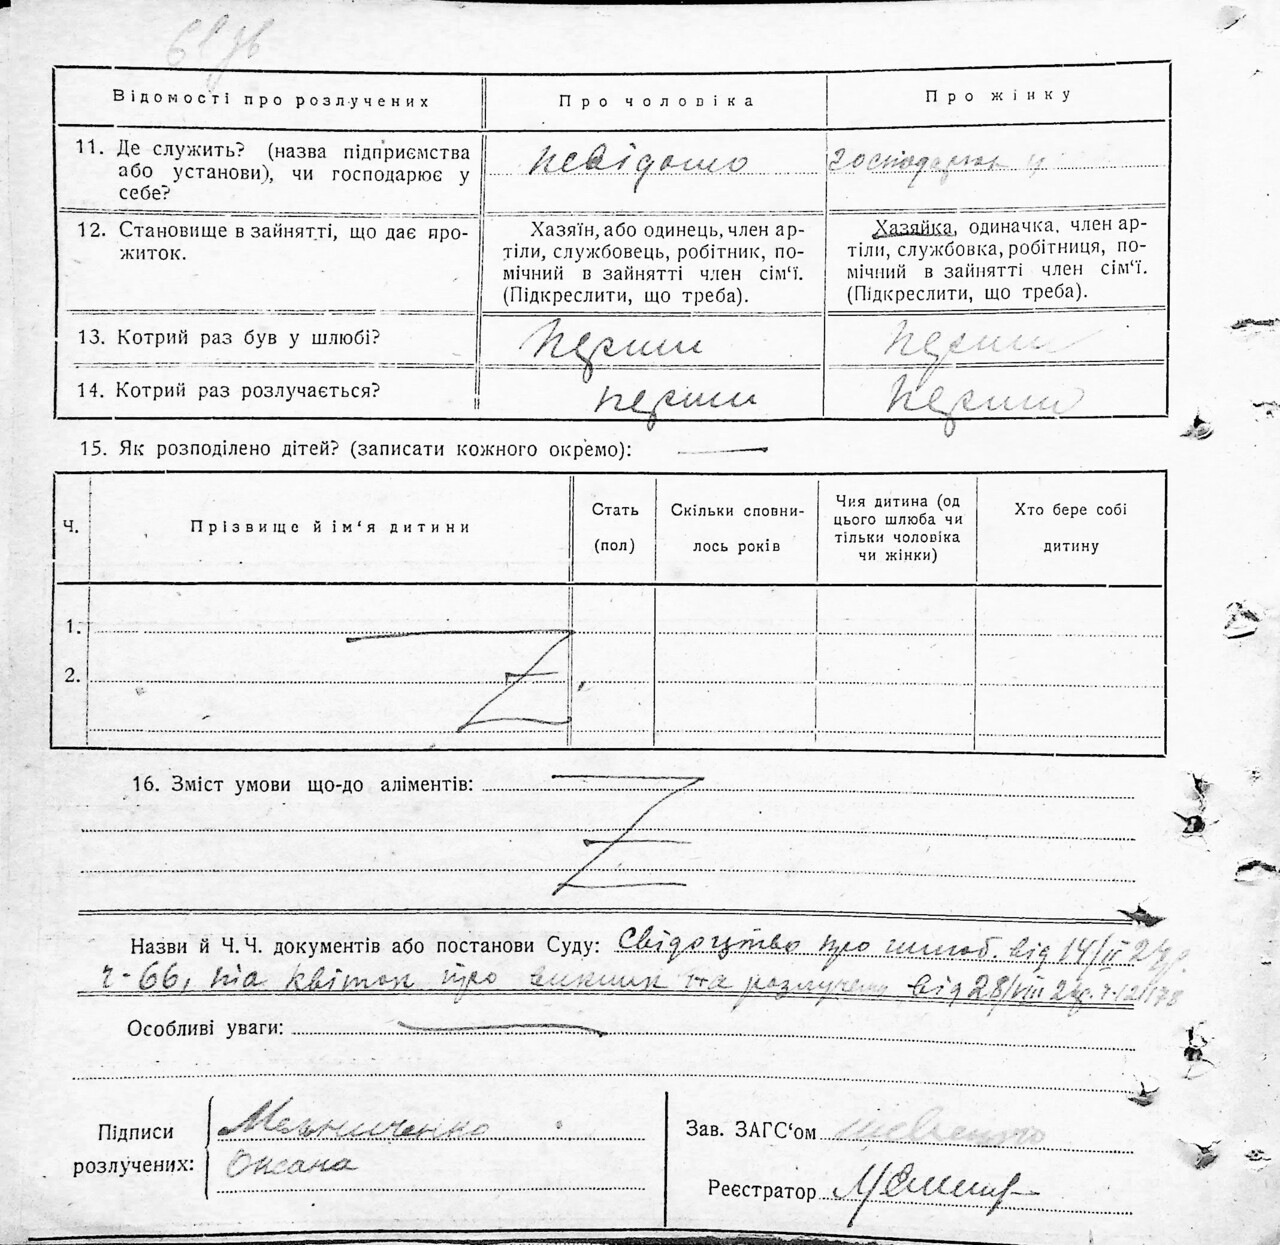 Відомості про розлучених
Про чоловіка
Про жінку
11. Де служить? (назва підприємства
або установи), чи господарює у
себе?
невідомо
12. Становище в зайнятті, що дає про-
житок.
Хазяїн, або одинець, член ар-
тіли, службовець, робітник, по-
мічний в зайнятті член сім‘ї.
(Підкреслити, що треба).
Хазяйка, одиначка, член ар-
тіли, службовка, робітниця, по-
мічний в зайнятті член сім‘ї.
(Підкреслити, що треба).
13. Котрий раз був у шлюбі?
перший
перший
14. Котрий раз розлучається?
перший
перший
15. Як розподілено дітей? (записати кожного окремо):
Ч.
Прізвище й ім‘я дитини
Стать
(пол)
Скільки сповни-
лось років
Чия дитина (од
цього шлюба чи
тільки чоловіка
чи жінки)
Хто бере собі
дитину
1.
2.
16. Зміст умови що-до аліментів:
Назви й Ч.Ч. документів або постанови Суду: Свідоцтво про шлюб. від 14/II
ч-66, та квіток про виклик та розлучення від 28/VIII
Особливі уваги:
Підписи
розлучених:
Мельниченко
Оксана
Зав. ЗАГС‘ом
Реєстратор